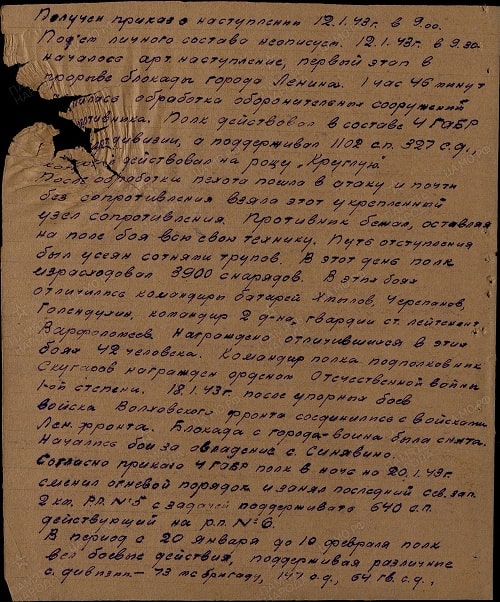 Получен приказ о наступлении 12.1.43г. в 9.00.
Под'ем личного состава неописуем. 12.1.43г. в 9.30
началось арт. наступление, первый этап в
прорыве блокады города Ленина. 1 час 45 минут
обработка оборонительных сооружений
Полк действовал в составе 4 ГАБР
дивизии, а поддерживал 1102 с.п. 327 с.д.,
действовал на рощу „Круглую"
После обработки пехота пошла в атаку и почти
без сопротивления взяла этот укрепленный
узел сопротивления. Противник бежал, оставляя
на поле боя всю свою технику. Путь отступления
был усеян сотнями трупов. В этот день полк
израсходовал 3900 снарядов. В этих боях
отличились командиры батарей Хмылов, Черепанов,
командир 2 д-на, гвардии ст. лейтенант
Варфоломеев. Награждено отличившихся в этих
боях 42 человека. Командир полка подполковник
награжден орденом Отечественной войны
1-ой степени. 18.1.43г. после упорных боев
войска Волховского фронта соединились с войсками
Лен. фронта. Блокада с города-воина была снята.
Начались бои за овладение с. Синявино.
Согласно приказа 4 ГАБР полк в ночь на 20.1.43г.
сменил огневой порядок и занял последний сев. зап.
2 км. Р.П. №5 с задачей поддерживать 640 с.п.
действующий на р.п. №6.
В период с 20 января до 10 февраля полк
вел боевые действия, поддерживая различные
с. дивизии - 73 мс бригаду, 147 с.д., 64 гв. с.д.,